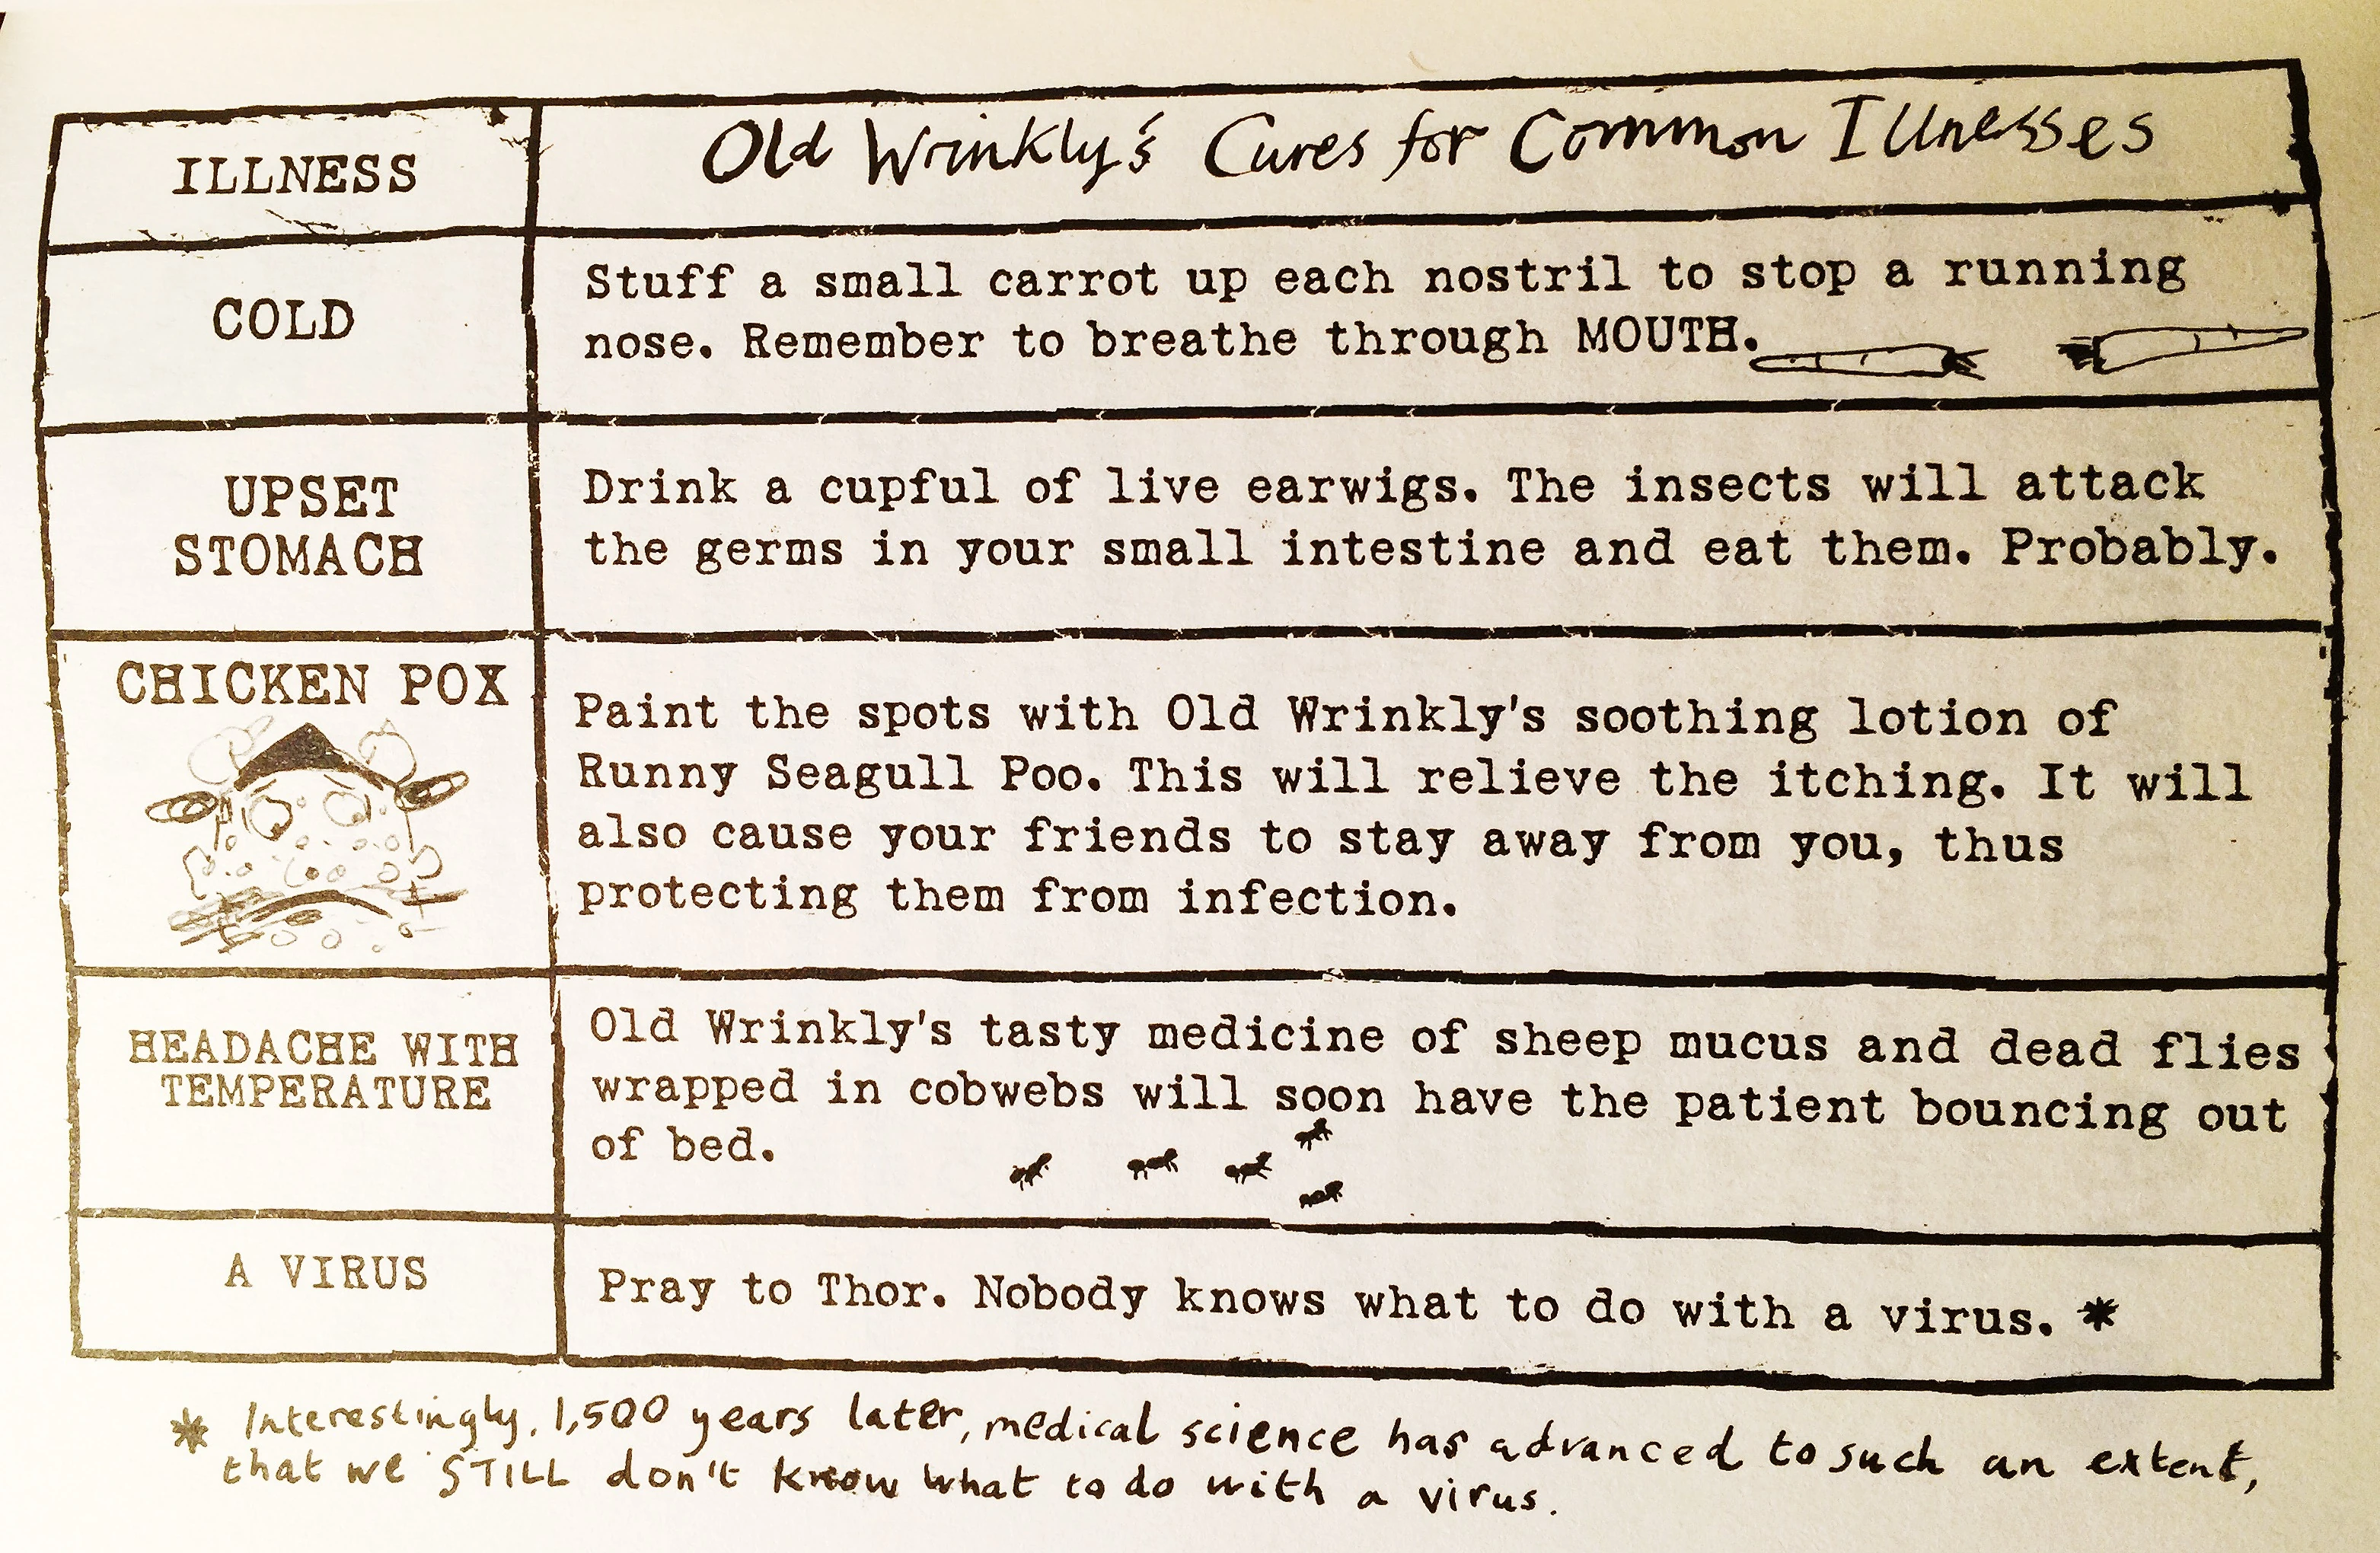 ILLNESS
Old Wrinkly's Cures for Common Illnesses
COLD
Stuff a small carrot up each nostril to stop a running
nose. Remember to breathe through MOUTH.
UPSET
STOMACH
Drink a cupful of live earwigs. The insects will attack
the germs in your small intestine and eat them. Probably.
CHICKEN POX
Paint the spots with Old Wrinkly's soothing lotion of
Runny Seagull Poo. This will relieve the itching. It will
also cause your friends to stay away from you, thus
protecting them from infection.
HEADACHE WITH
TEMPERATURE
Old Wrinkly's tasty medicine of sheep mucus and dead flies
wrapped in cobwebs will soon have the patient bouncing out
of bed.
A VIRUS
Pray to Thor. Nobody knows what to do with a virus. *
* Interestingly, 1,500 years later, medical science has advanced to such an extent,
that we STILL don't know what to do with a virus.